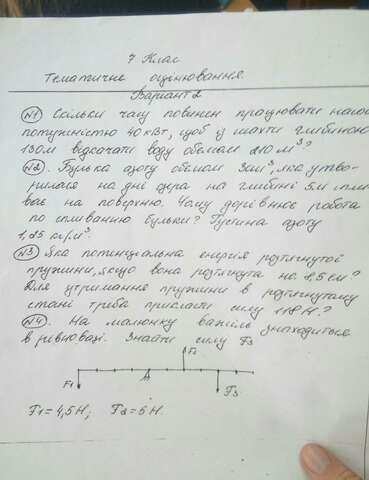 7 Клас
Тематичне оцінювання.
Варіант 2
№1 Скільки часу повинен працювати насос
потужністю 40 кВт, щоб у шахти глибиною
130м відкачати воду обємом 210 м³?
№2. Булька азоту обємом 3см³, яка утво-
рилася на дні озера на глибині 5м спли-
ває на поверхню. Чому дорівнює робота
по спливанню бульки? Густина азоту
1,25 кг/м³.
№3 Яка потенціальна енергія розтягнутої
пружини, якщо вона розтягнута на 8,5 см?
Для утримання пружини в розтягнутому
стані треба прикласти силу 118 Н?
№4. На малюнку важіль знаходиться
в рівновазі. Знайти силу F3
F2
F1
F3
F1 = 4,5 Н; F2 = 6 Н.